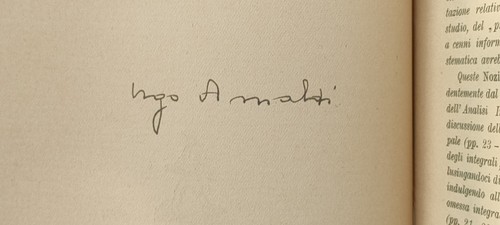 Ugo Amaldi
tazione relativ
studio, del „p
a cenni inform
stematica avreb
Queste Nozi
dentemente dal
dell'Analisi I
discussione dell
pale (pp. 23 –
degli integrali
lusingandoci di
indulgendo all
omessa integra
(pp. 21, 2